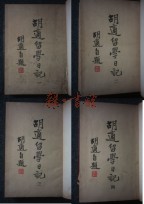 胡適留學日記
胡適自題
胡適留學日記
胡適自題
胡適留學日記
胡適自題
胡適留學日記
胡適自題